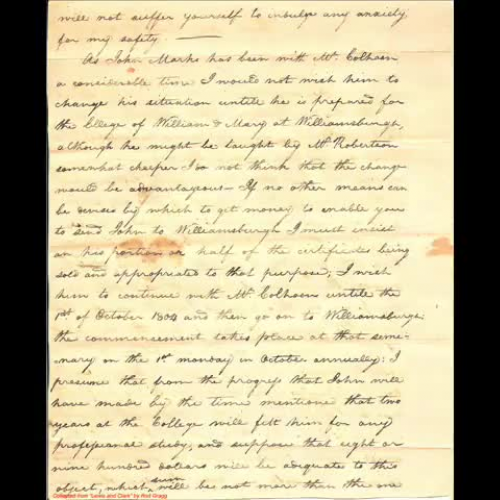 will not suffer yourself to indulge any anxiety
for my safety. —
As John Marks has been with Mr. Colhoon
a considerable time I would not wish him to
change his situation untile he is prepared for
the Cllege of William & Mary at Williamsburgh,
although he might be taught by Mr. Robertson
somewhat cheaper I do not think that the change
would be advantagious— If no other means can
be devised by which to get money to enable you
to send John to Williamsburgh I must insist
on his portion or half of the certificates being
sold and appropriated to that purpose; I wish
him to continue with Mr. Colhoon untile the
1st of October 1804 and then go on to Williamsburgh
the commencement takes place at that seme-
nary on the 1st monday in October annually: I
presume that from the progress that John will
have made by the time mentione that two
years at the College will fitt him for any
professional study, and suppose that eight or
nine hundred dollars will be adiquate to this
object, which sum will bas not more than the one
Collected from "Lewis and Clark" by Rod Gragg